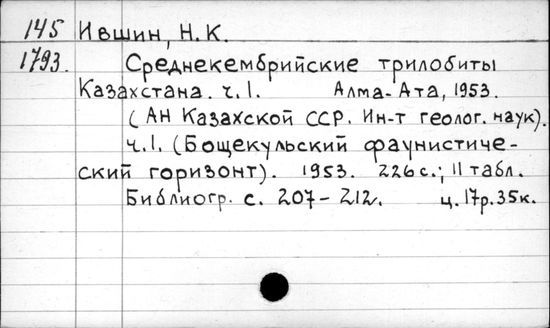 145 Ившин, Н. К.
1793. Среднекембрийские трилобиты
Казахстана. ч. 1. Алма-Ата, 1953.
(АН Казахской ССР. Ин-т геолог. наук).
ч. 1. (Бощекульский фаунистиче-
ский горизонт). 1953. 226 с.; 11 табл.
Библиогр. с. 207-212. ц. 17р. 35к.